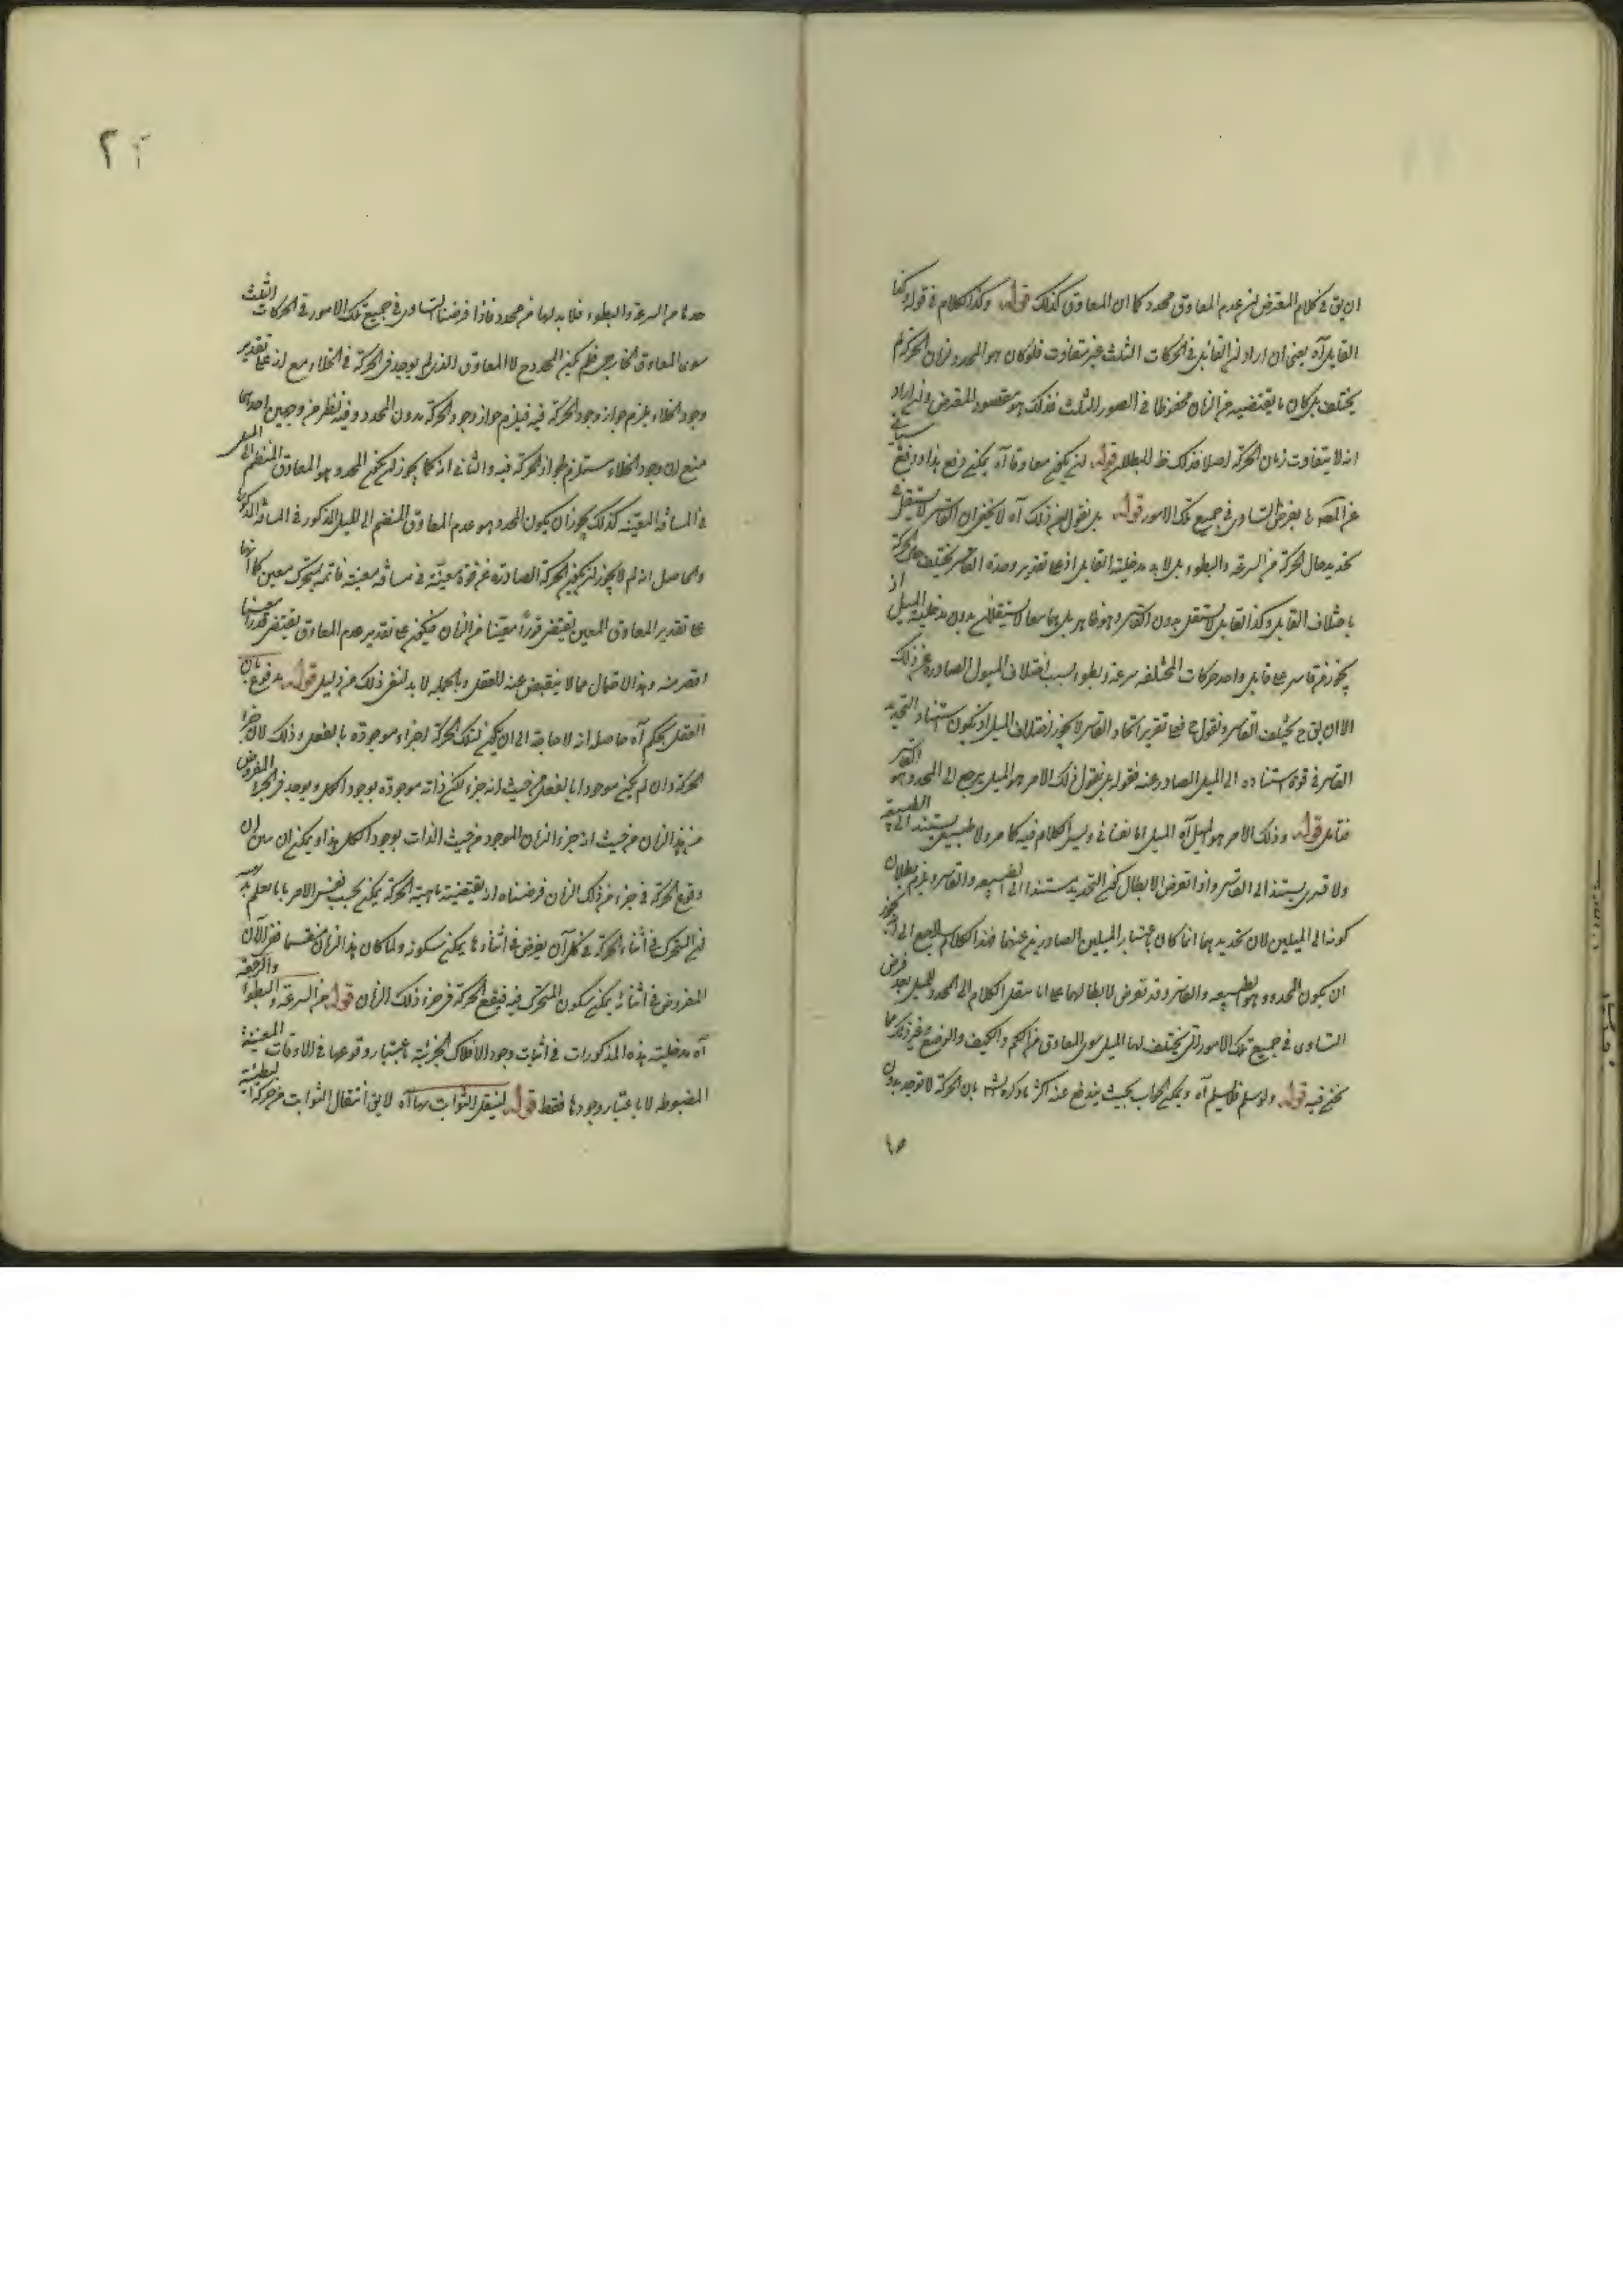 ان يق فى كلام المعترض لنـ عدم المعاوق محدد كما ان المعاوق كذلك قوله وكذا الكلام فى قوله وكذا
القابل آه يعنى ان اراد ان القابل فى الحركات الثلث غير متفاوت فلو كان هو المحدد لزمان الحركة لم
يختلف بل كان ما يقتضيه من الزمان محفوظا فى الصور الثلث فذلك هو مقصود المعترض وان اراد
انه لا يتفاوت زمان الحركة اصلا فذلك ظ البطلان قوله لنـ يكون معاوقا آه يمكن دفع هذا ودفع
بفرض التساوى فى جميع تلك الامور قوله بل نقول فى ذلك آه لا يخفى ان القاسر لا يستقل
تحديد حال الحركة من السرعة والبطوء بل لا بد من مدخلية القابل اذ على تقدير وحدة القاسر يختلف حال الحركة
باختلاف القابل وكذا القابل لا يستقل بدون القاسر وهو ظاهر بل هما معا لا يستقلان بدون مدخلية الميل اذ
يجوز من قاسر على قابل واحد حركات المختلفة سرعة وبطوء بسبب اختلاف الميول الصادرة عن ذلك
الا ان يق ح يختلف القاسر ونقول ح فعلى تقدير اتحاد القاسر لا يجوز اختلاف الميل اذ يكون استناد التحديد
القاسر فى قوة استناده الى الميل الصادر عنه فقوله بل نقول ذلك الامر هو الميل يرجع الى المحدد هو القاسر
فتامل قوله وذلك الامر هو الميل آه الميل اما نفسانى وليس الكلام فيه كما مر ولا طبيعى يستند الى الطبيعة
ولا قسرى يستند الى القاسر واذا تعرض لابطال كون التحديد مستندا الى الطبيعة والقاسر ويلزم بطلان
كونه الى الميلين لان تحديدهما انما كان باعتبار الميلين الصادرين عنهما فهذا الكلام راجع الى تجويز
ان يكون المحدد هو الطبيعة والقاسر وقد تعرض لابطالهما على انا ننقل الكلام الى المحدد للميل بعد فرض
التساوى فى جميع تلك الامور التى يختلف لها الميل سوى المعاوق من الكم والكيف والوضع وغير ذلك مما
نحن فيه قوله ولو سلم فلا يسلم آه ويمكن الجواب بحيث يندفع عنه اكثر ما ذكره الش بان الحركة لا توجد بدون
حد ما من السرعة والبطوء فلا بد لها من محدد فاذا فرضنا التساوى فى جميع تلك الامور فى الحركات الثلث
سوى المعاوق الخارجى فلم يكن المحدد ح الا المعاوق الذى لم يوجد فى الحركة فى الخلاء مع انه على تقدير
وجود الخلاء يلزم جواز وجود الحركة فيه فيلزم جواز وجود الحركة بدون المحدد وفيه نظر من وجهين احدهما
منع ان وجود الخلاء مستلزم لجواز الحركة فيه والثانى انه كما يجوز ان يكون المحدد هو المعاوق المنضم الى الميل
فى المسافة المعينة كذلك يجوز ان يكون المحدد هو عدم المعاوق المنضم الى الميل المذكور فى المسافة المذكورة
والحاصل انه لم لا يجوز ان يكون الحركة الصادرة عن قوة معينة فى مسافة معينة قائمة بمتحرك معين كما انها
على تقدير المعاوق المعين يقتضى قدرا معينا من الزمان فيكون على تقدير عدم المعاوق يقتضى قدرا معينا
اقصر منه وهذا الاحتمال مما لا ينقبض عنه العقل وبالجملة لا بد لنفى ذلك من دليل قوله مدفوع بان
العقل يحكم آه حاصله انه لا حاجة الى ان يكون لتلك الحركة اجزاء موجودة بالفعل وذلك لان جزء
الحركة وان لم يكن موجودا بالفعل من حيث انه جزء لكن ذاته موجودة بوجود الكل ويوجد فى الجزء المفروض
من هذا الزمان من حيث انه جزء الزمان الموجود من حيث الذات بوجود الكل هذا ويمكن ان يبين ان
وقوع الحركة فى جزء من ذلك الزمان فرضناه انه يقتضيه ماهية الحركة يمكن بحسب نفس الامر بانا نعلم بديهة
ان المتحرك فى اثناء الحركة فى كل آن يفرض فى اثناءها يمكن سكونه ولما كان هذا الزمان منقسما ففى الآن
المفروض فى اثنائه يمكن سكون المتحرك فيه فيقع الحركة فى جزء ذلك الزمان قوله من السرعة والبطوء والرجعة
آه مدخلية هذه المذكورات فى اثبات وجود الافلاك الجزئية باعتبار وقوعها فى الاوقات المعينة
المضبوطة لا باعتبار وجودها فقط قوله لينتقل الثوابت بها آه لا يق انتقال الثوابت من حركة البطيئة